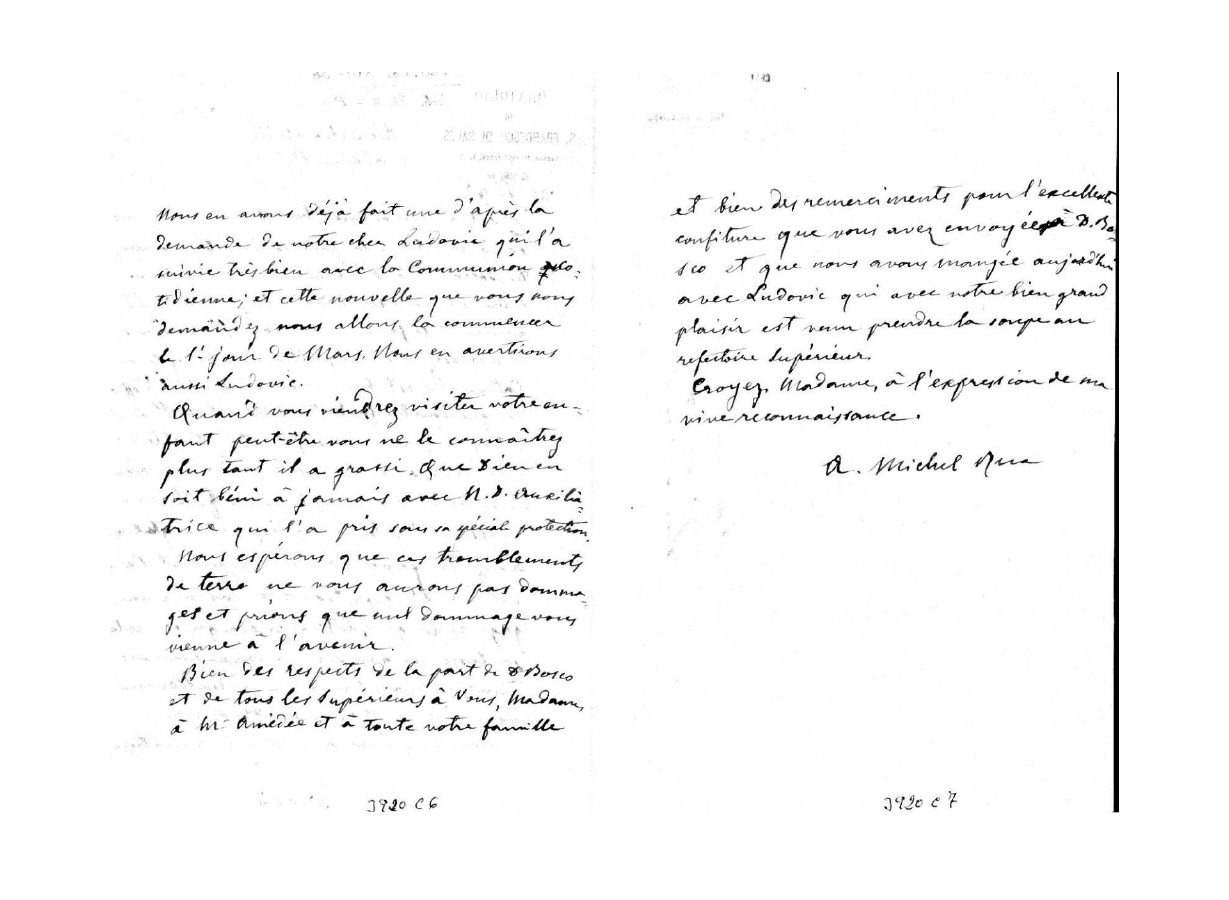 Nous en avons déjà fait une d'après la
demande de notre cher Ludovic qui l'a
suivie très bien avec la Communion quo-
tidienne; et cette nouvelle que vous nous
demandez nous allons la commencer
le 1r jour de Mars. Nous en avertirons
aussi Ludovic.
Quand vous viendrez visiter votre en-
fant peut-être vous ne le connaîtrez
plus tant il a grassi. Que Dieu en
soit béni à jamais avec N. D. Auxilia-
trice qui l'a pris sous sa spéciale protection.
Nous espérons que ces tremblements
de terre ne vous aurons pas domma-
gés et prions que nul dommage vous
vienne à l'avenir.
Bien des respects de la part de D Bosco
et de tous les Supérieurs à Vous, Madame,
à Mr Amédée et à toute votre famille
J920 C6
et bien des remerciments pour l'excellente
confiture que vous avez envoyée à D. Bo-
sco et que nous avons mangée aujourd'hui
avec Ludovic qui avec notre bien grand
plaisir est venu prendre la soupe au
refectoire Supérieur.
Croyez, Madame, à l'expression de ma
vive reconnaissance.
A. Michel Rua
J920 C7